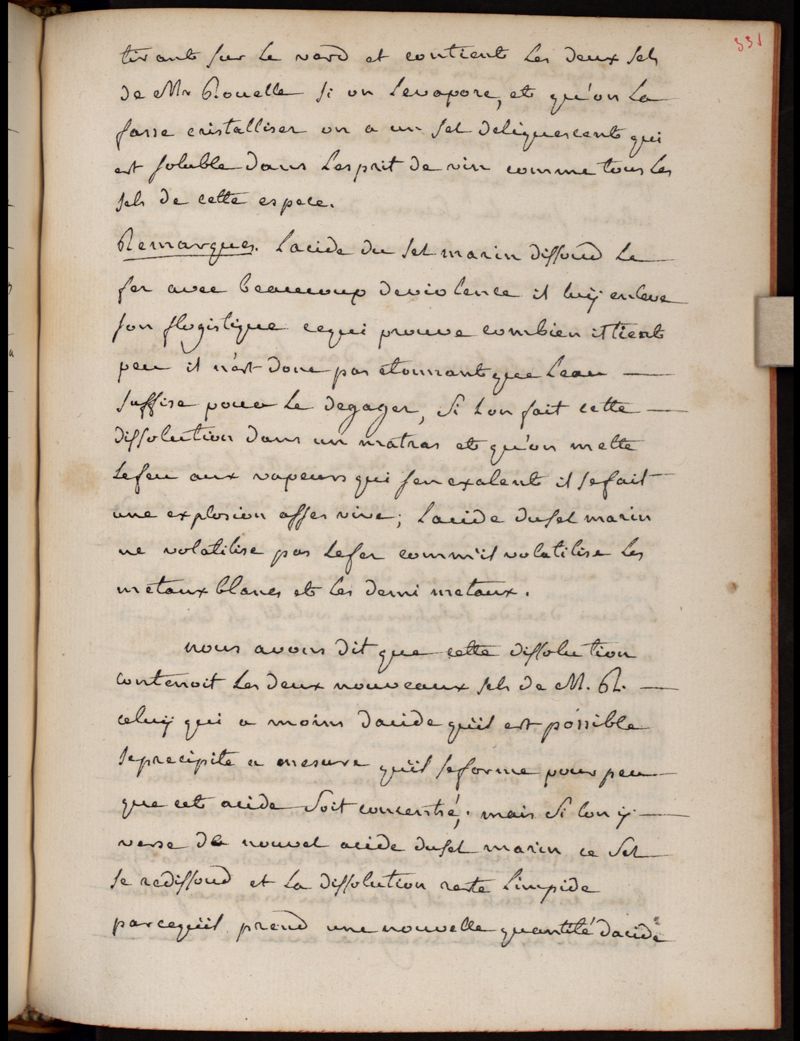 331
tirant sur le verd et contient les deux sels
de Mr Rouelle si on Levapore, et qu'on La
fasse cristalliser on a un sel deliquescent qui
est soluble dans Lesprit de vin comme tous les
sels de cette espece.
Remarques. Lacide du sel marin dissoud Le
fer avec beaucoup de violence il luy enleve
son flogistique cequi prouve combien il tient
peu il n'est donc pas etonnant que Leau —
suffise pour Le degager, si Lon fait cette —
dissolution dans un matras et qu'on mette
Lefeu aux vapeurs qui sen exalent il se fait
une explosion asses vive; Lacide du sel marin
ne volatilise pas Lefer comm'il volatilise Les
metaux blancs et les demi metaux.
nous avons dit que cette dissolution
contenoit Les deux nouveaux sels de M. R. —
celuy qui a moins dacide qu'il est possible
se precipite a mesure qu'il se forme pour peu —
que cet acide soit concentré; mais si lon y —
verse de nouvel acide du sel marin ce sel
se redissoud et La dissolution reste Limpide
parcequ'il prend une nouvelle quantité dacide